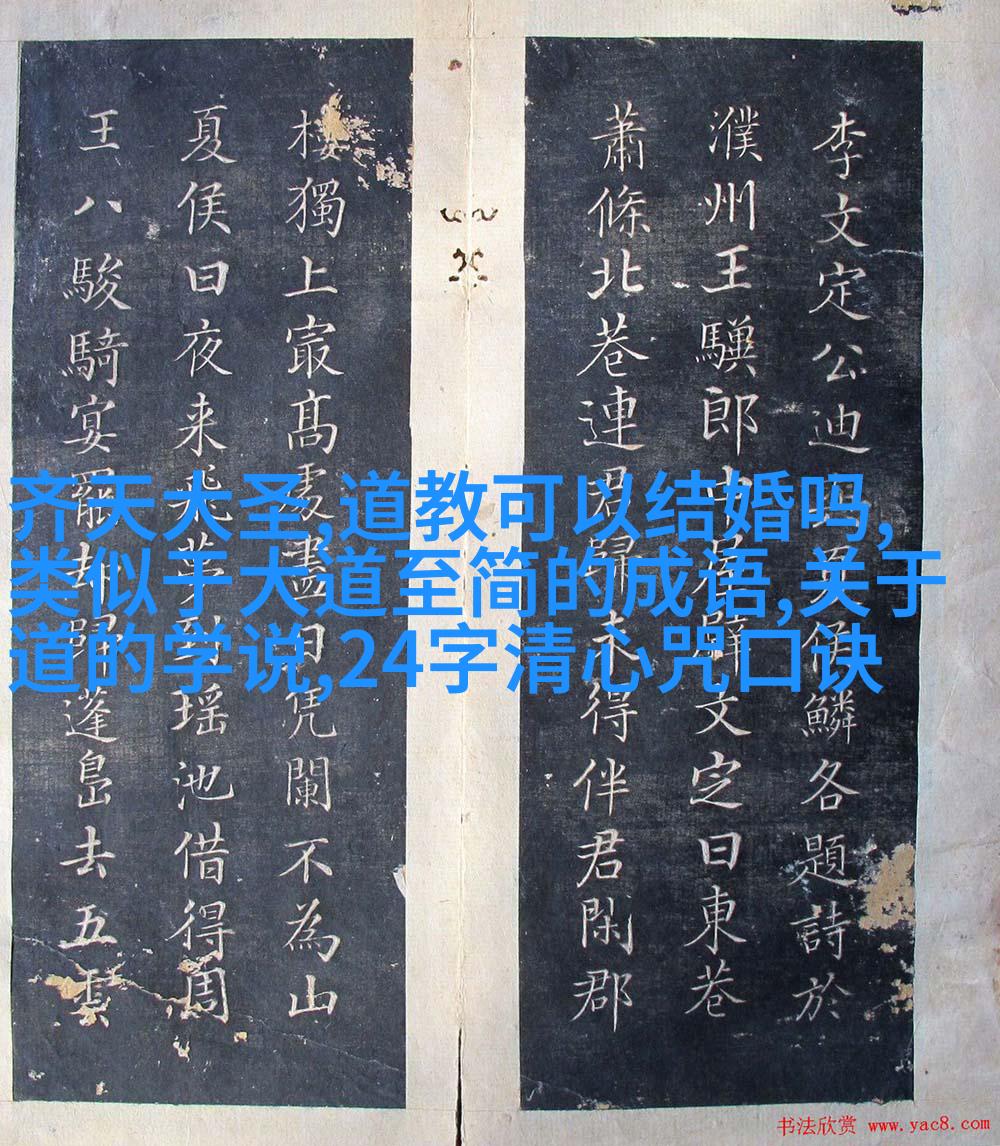 李文定公迪 侯鱗各題詩於
濮州王驥郎中 文定曰東巷
蕭條北巷連君歸未得伴君閑郡
樓獨上寂高處盡日凭闌不為山
夏侯曰夜来飛夢到瑤池借得周
王八駿騎宴罷却歸蓬島去五雲
齐天大圣,道教可以结婚吗,
类似于大道至简的成语,关于
道的学说,24字清心咒口诀
书法欣赏 www.yac8.com